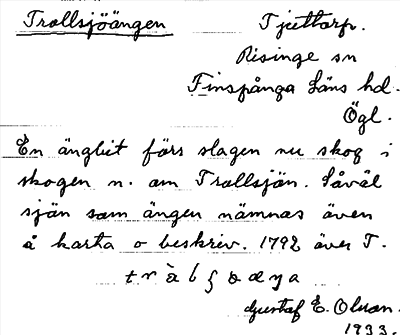 Trollsjöängen
Tjuttorp.
Risinge sn
Finspånga Läns hd.
Ögl.
En ängbit förs slagen nu skog i
skogen n. om Trollsjön. Såväl
sjön som ängen nämnas även
å karta o beskriv. 1792 över T.
Gustaf E. Olsson.
1933.